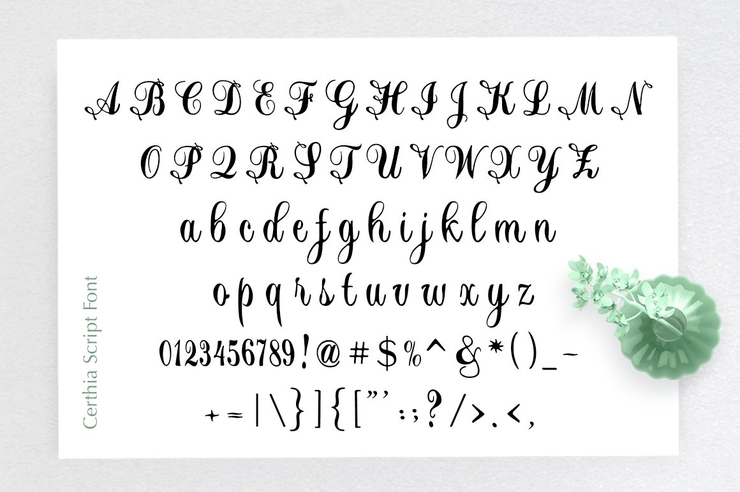 A B C D E F G H I J K L M N
O P Q R S T U V W X Y Z
a b c d e f g h i j k l m n
o p q r s t u v w x y z
0123456789!@#$%^&*()_~
+=|\}]{["':;?/>.<,
Certhia Script Font